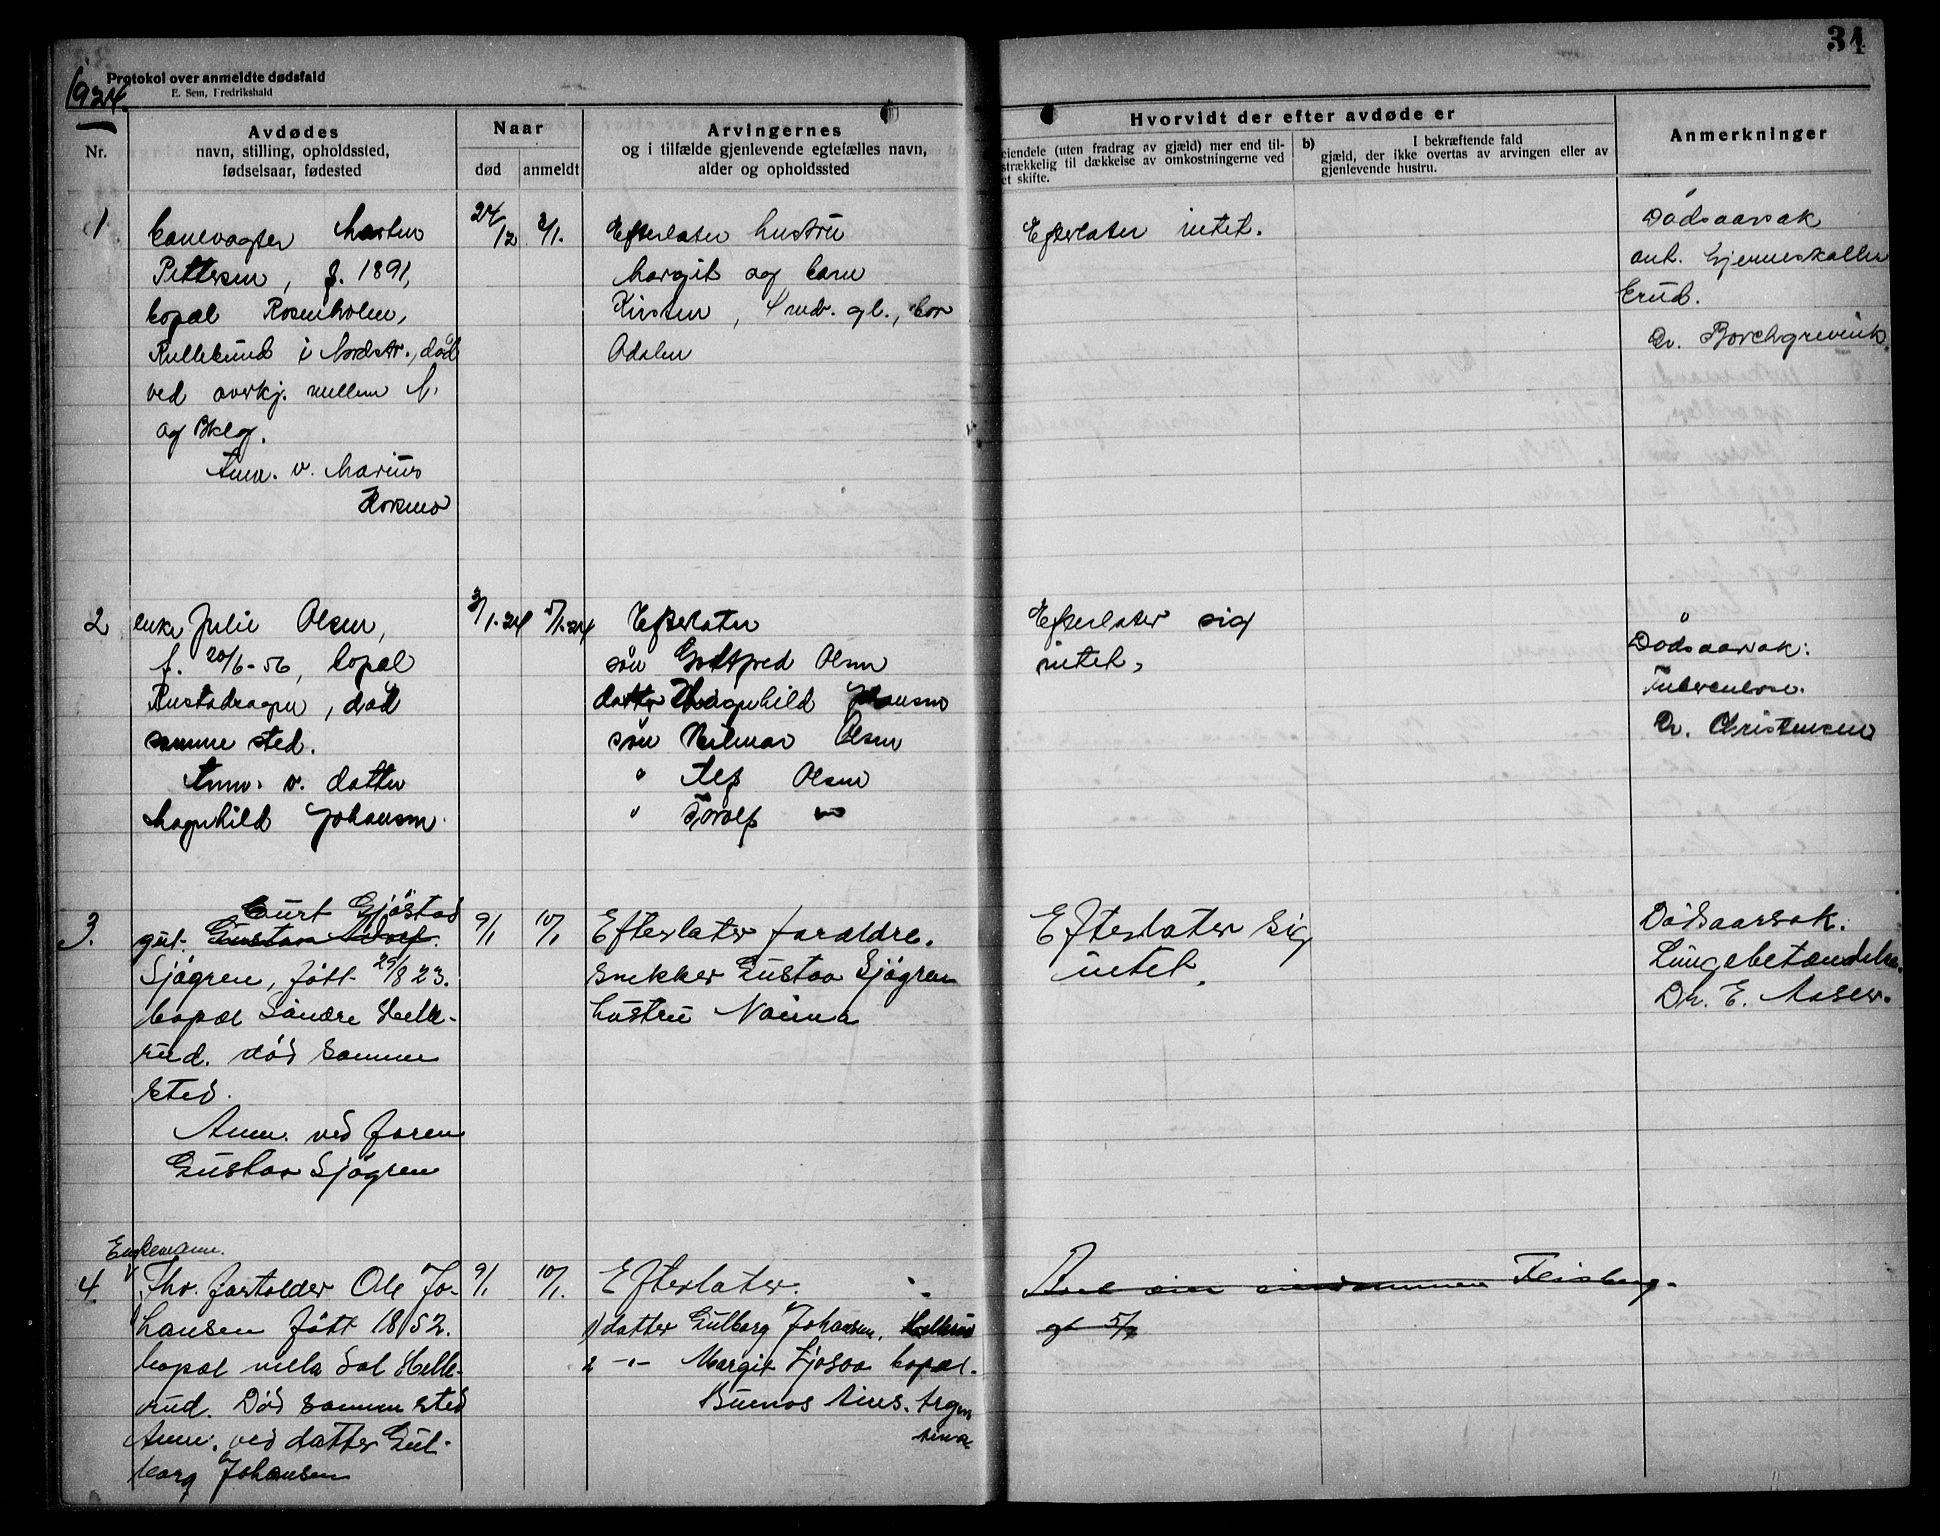 34
Protokol over anmeldte dødsfald
E. Sem, Fredrikshald
1924.
Nr.
Avdødes
navn, stilling, opholdssted,
fødselsaar, fødested
Naar
død
anmeldt
Arvingernes
og i tilfælde gjenlevende egtefælles navn,
alder og opholdssted
Hvorvidt der efter avdøde er
eiendele (uten fradrag av gjæld) mer end til-
strækkelig til dækkelse av omkostningerne ved
et skifte.
b)
I bekræftende fald
gjæld, der ikke overtas av arvingen eller av
gjenlevende hustru.
Anmerkninger
1
banevogter Marten
Pettersen, f. 1891,
bopæl Rosenholm,
Kullebund i Nordstr., död
ved overkj. mellem
og Bklg.
Anm. v. Marius
24/12
2/1.
Efterlater hustru
Margit og barn
Kirsten, mdr. gl., bor
Odalen
Efterlater intet.
Dödsaarsak
ant. hjerneskalle
brud.
Dr. Borchgrevink.
2
enke Julie Olsen,
f. 20/6-56, bopæl
Rustadragen, död
samme sted.
Anm. v. datter
Magnhild Johansen.
3/1.24
5/1.24
Efterlater
sön Gottfred Olsen
datter Magnhild Johansen
sön Hilmar Olsen
" Alf Olsen
" Torolf "
Efterlater sig
intet.
Dödsaarsak:
Tuberculose.
Dr. Christensen
3.
Curt Gjöstad
gut. Gustav Adolf.
Sjögren, födt 29/8 23.
bopæl Söndre Helle-
rud. död samme
sted.
Anm. ved faren
Gustav Sjögren
9/1
10/1
Efterlater foreldre.
snekker Gustav Sjögren
hustru Naima
Efterlater sig
intet.
Dödsaarsak.
Lungebetændelse.
Dr. E. Aaser.
Enkemann.
4.
Fhv. forvalter Ole Jo-
hansen födt 1852.
bopæl villa Sol Helle-
rud. Död samme sted
Anm. ved datter Gul-
borg Johansen
9/1.
10/1.
Efterlater.
1) datter Gulborg Johansen, Hellerud
2 -"- Margit bopæl.
Buenos Aires. Argen
tina